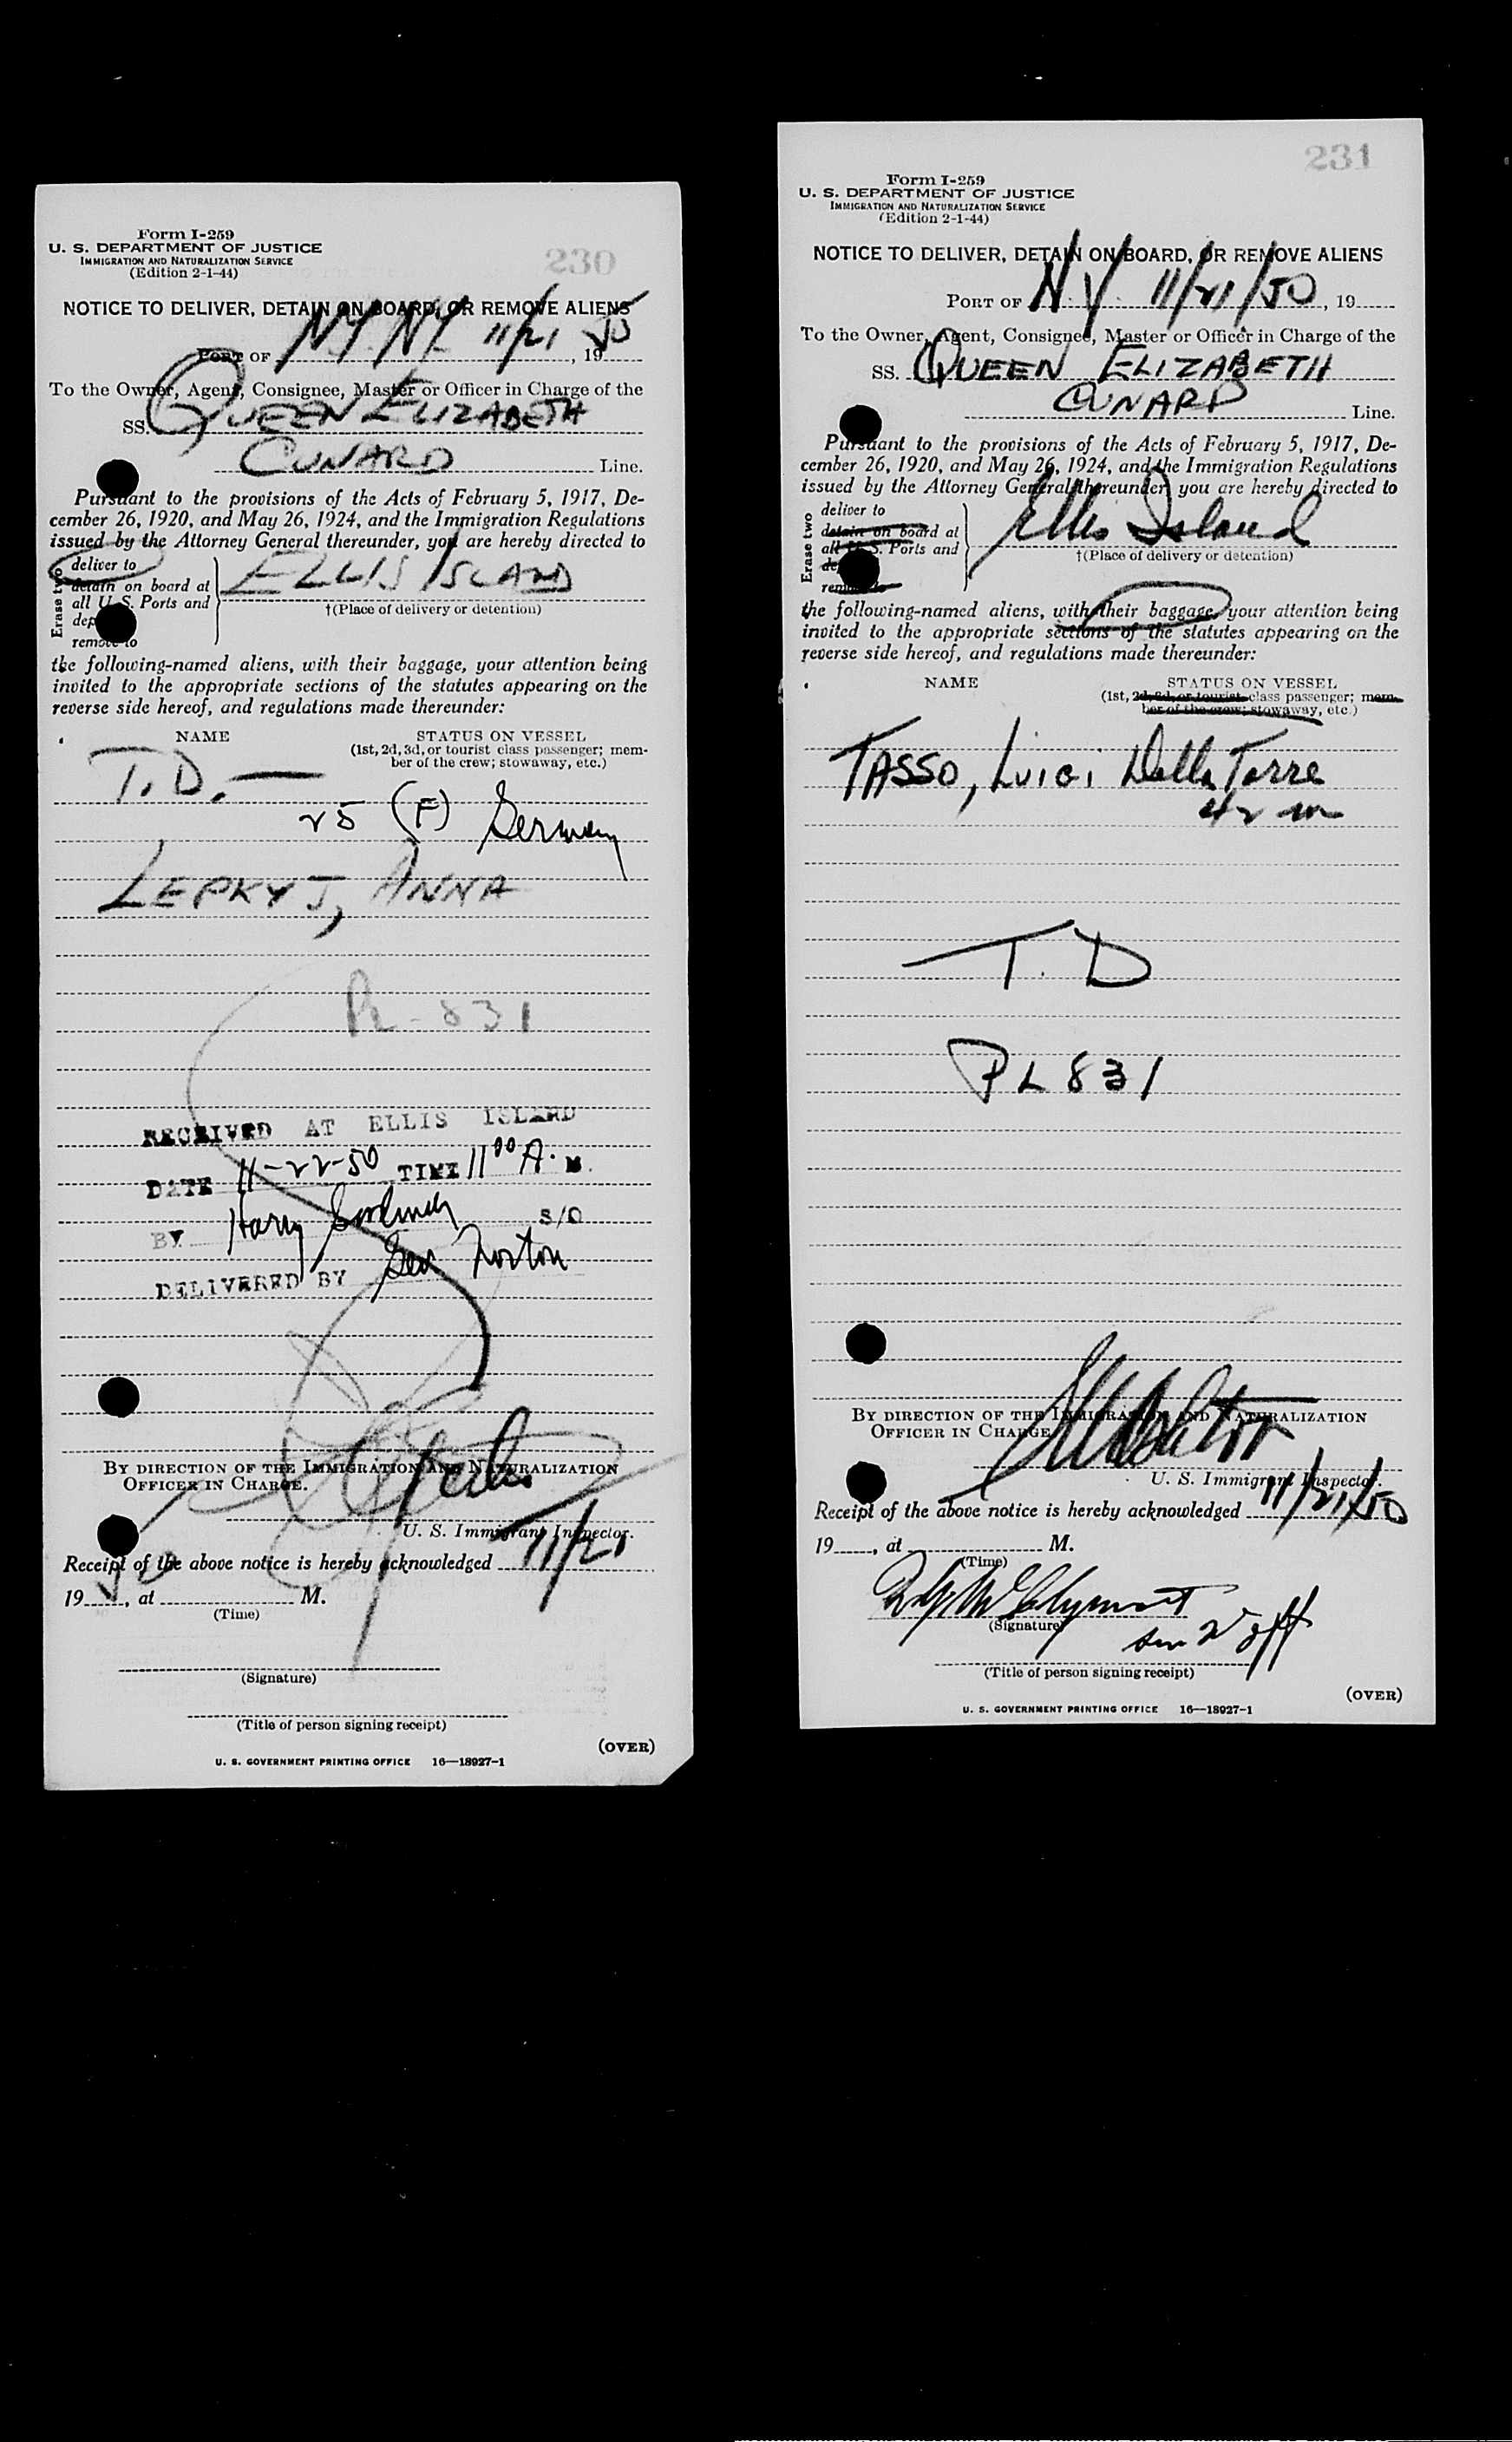 230
Form I-259
U. S. DEPARTMENT OF JUSTICE
IMMIGRATION AND NATURALIZATION SERVICE
(Edition 2-1-44)
NOTICE TO DELIVER, DETAIN ON BOARD, OR REMOVE ALIENS
PORT OF NY NY 11/21, 1950
To the Owner, Agent, Consignee, Master or Officer in Charge of the
SS. QUEEN ELIZABETH
CUNARD Line.
Pursuant to the provisions of the Acts of February 5, 1917, De-
cember 26, 1920, and May 26, 1924, and the Immigration Regulations
issued by the Attorney General thereunder, you are hereby directed to
Erase two
deliver to
detain on board at
all U. S. Ports and
dep
remove to
ELLIS ISLAND
†(Place of delivery or detention)
the following-named aliens, with their baggage, your attention being
invited to the appropriate sections of the statutes appearing on the
reverse side hereof, and regulations made thereunder:
NAME STATUS ON VESSEL
(1st, 2d, 3d, or tourist class passenger; mem-
ber of the crew; stowaway, etc.)
T.D. —
25 (F) Germany
LEPKYJ, ANNA
PL-831
RECEIVED AT ELLIS ISLAND
DATE 11-22-50 TIME 11 00 A. M.
BY Harry S/O
DELIVERED BY Geo Norton
BY DIRECTION OF THE IMMIGRATION AND NATURALIZATION
OFFICER IN CHARGE.
U. S. Immigrant Inspector.
Receipt of the above notice is hereby acknowledged 11/21
19 50, at M.
(Time)
(Signature)
(Title of person signing receipt)
(OVER)
U. S. GOVERNMENT PRINTING OFFICE 16—18927-1
231
Form I-259
U. S. DEPARTMENT OF JUSTICE
IMMIGRATION AND NATURALIZATION SERVICE
(Edition 2-1-44)
NOTICE TO DELIVER, DETAIN ON BOARD, OR REMOVE ALIENS
PORT OF N.Y. 11/21/50, 19
To the Owner, Agent, Consignee, Master or Officer in Charge of the
SS. QUEEN ELIZABETH
CUNARD Line.
Pursuant to the provisions of the Acts of February 5, 1917, De-
cember 26, 1920, and May 26, 1924, and the Immigration Regulations
issued by the Attorney General thereunder, you are hereby directed to
Erase two
deliver to
detain on board at
all U. S. Ports and
de
remove to
Ellis Island
†(Place of delivery or detention)
the following-named aliens, with their baggage, your attention being
invited to the appropriate sections of the statutes appearing on the
reverse side hereof, and regulations made thereunder:
NAME STATUS ON VESSEL
(1st, 2d, 3d, or tourist class passenger; mem-
ber of the crew; stowaway, etc.)
TASSO, LUIGI Della Torre
42 m
T.D
PL 831
BY DIRECTION OF THE IMMIGRATION AND NATURALIZATION
OFFICER IN CHARGE
U. S. Immigrant Inspector.
Receipt of the above notice is hereby acknowledged 11/21/50
19, at M.
(Time)
(Signature)
(Title of person signing receipt)
(OVER)
U. S. GOVERNMENT PRINTING OFFICE 16—18927-1